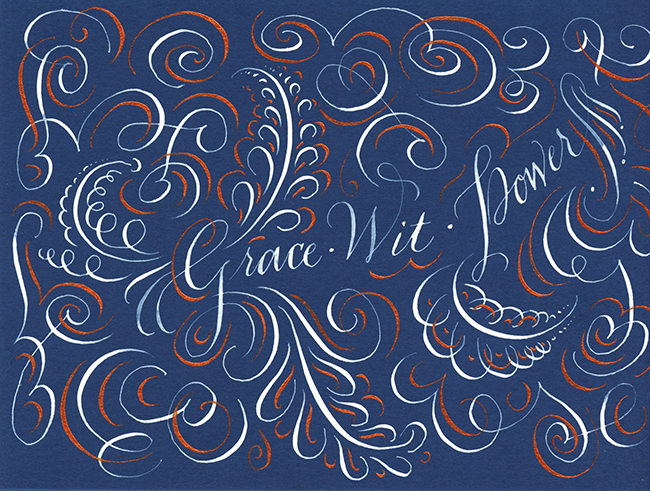 Grace · Wit · Power